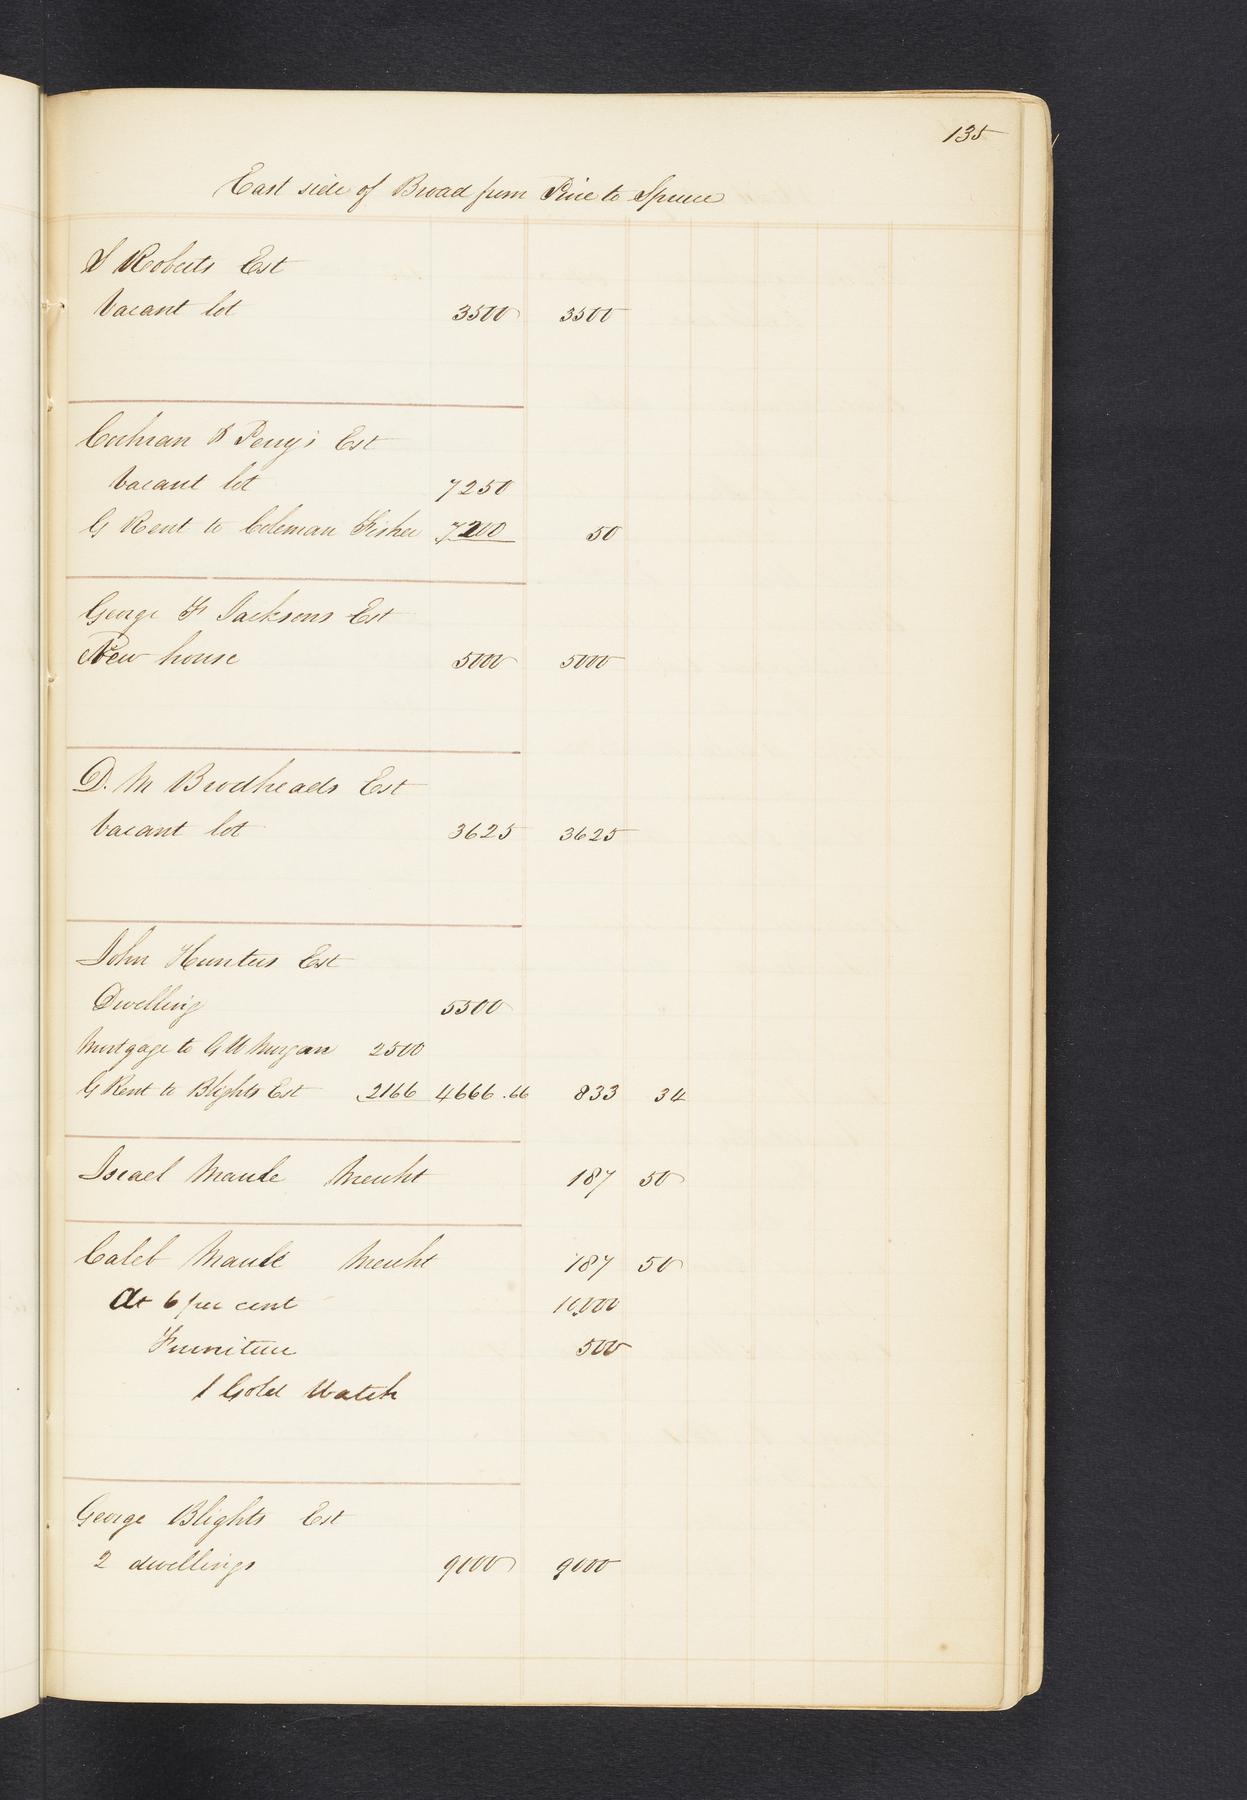 135
East side of Broad from Pine to Spruce
S Roberts Est
Vacant lot 3500 3500
Cochran & Perry's Est
Vacant lot 7250
G Rent to Coleman Fisher 7200 50
George F Jacksons Est
New house 5000 5000
D. M Brodheads Est
Vacant lot 3625 3625
John Hunters Est
Dwelling 5500
Mortgage to G W Morgan 2500
G Rent to Blights Est 2166 4666.66 833 34
Israel Maule Mercht 187 50
Caleb Maule Mercht 187 50
At 6 per cent 10,000
Furniture 500
1 Gold Watch
George Blights Est
2 dwellings 9000 9000